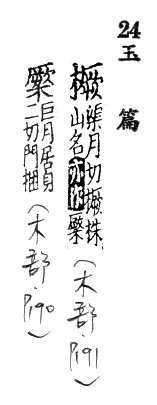 24 玉篇
橛 渠月切橛株
山名亦作橜 (木部.P191)
橜 巨月居月
二切門梱 (木部.P190)